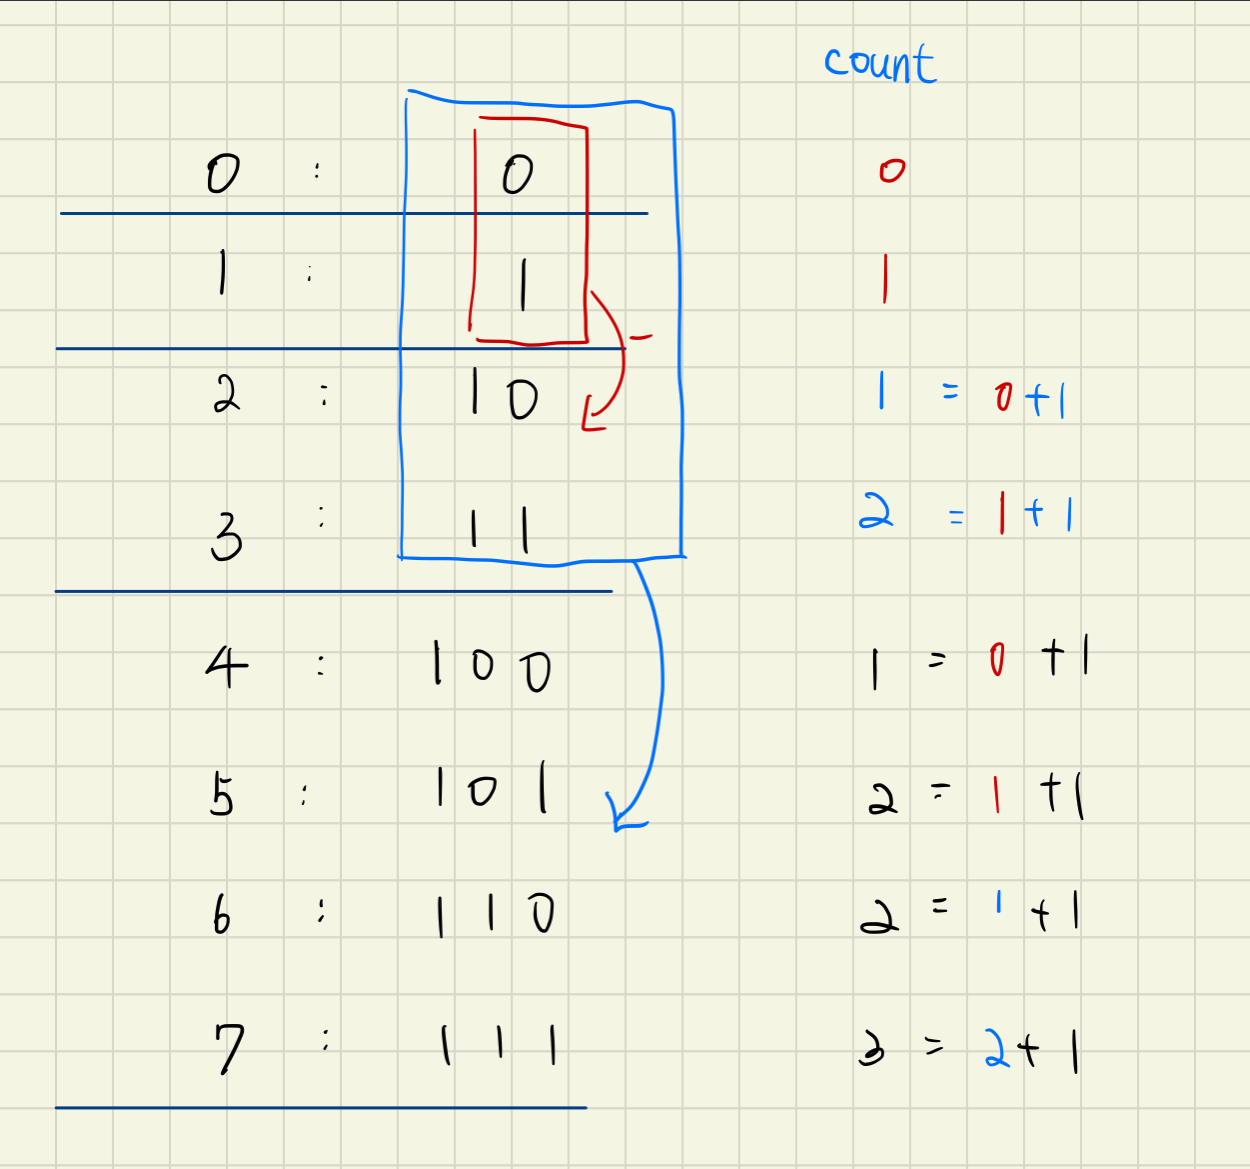 count
0 : 0 0
1 : 1 1
2 : 10 1 = 0+1
3 : 11 2 = 1+1
4 : 100 1 = 0+1
5 : 101 2 = 1+1
6 : 110 2 = 1+1
7 : 111 3 = 2+1